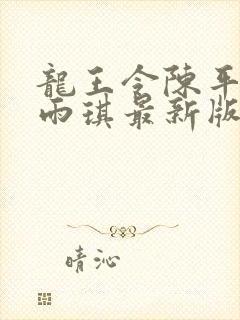 龍王令陳平
雨琪最新版
晴沁